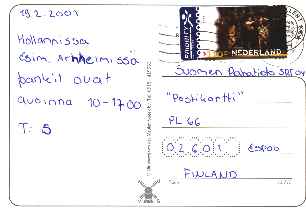 19.2.2001
Hollannissa
esim. Arnheimissa
pankit ovat
avoinna 10-17.00
T: S
PRIORITY
NEDERLAND
Suomen
"Postikortti"
PL 66
02601 ESPOO
FINLAND